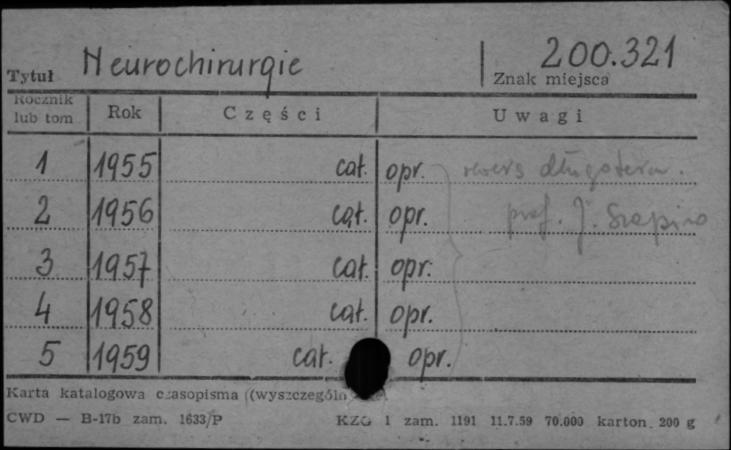 Tytuł Neurochirurgie Znak miejsca 200.321
Rocznik lub tom Rok Części Uwagi
1 1955 cał. opr. rewers długoterm.
2 1956 cał. opr. prof. J. Szapiro
3 1957 cał. opr.
4 1958 cał. opr.
5 1959 cał. opr.
Karta katalogowa czasopisma (wyszczególn
CWD — B-17b zam. 1633/P KZG 1 zam. 1191 11.7.59 70.000 karton. 200 g